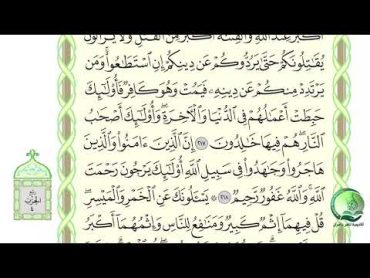 أَكْبَرُ عِندَ ٱللَّهِ وَٱلْفِتْنَةُ أَكْبَرُ مِنَ ٱلْقَتْلِ وَلَا يَزَالُونَ
يُقَٰتِلُونَكُمْ حَتَّىٰ يَرُدُّوكُمْ عَن دِينِكُمْ إِنِ ٱسْتَطَٰعُوا۟ وَمَن
يَرْتَدِدْ مِنكُمْ عَن دِينِهِۦ فَيَمُتْ وَهُوَ كَافِرٌ فَأُو۟لَٰٓئِكَ
حَبِطَتْ أَعْمَٰلُهُمْ فِى ٱلدُّنْيَا وَٱلْءَاخِرَةِ وَأُو۟لَٰٓئِكَ أَصْحَٰبُ
ٱلنَّارِ هُمْ فِيهَا خَٰلِدُونَ ٢١٧ إِنَّ ٱلَّذِينَ ءَامَنُوا۟ وَٱلَّذِينَ
هَاجَرُوا۟ وَجَٰهَدُوا۟ فِى سَبِيلِ ٱللَّهِ أُو۟لَٰٓئِكَ يَرْجُونَ رَحْمَتَ
ٱللَّهِ وَٱللَّهُ غَفُورٌ رَّحِيمٌ ٢١٨ يَسْـَٔلُونَكَ عَنِ ٱلْخَمْرِ وَٱلْمَيْسِرِ
قُلْ فِيهِمَآ إِثْمٌ كَبِيرٌ وَمَنَٰفِعُ لِلنَّاسِ وَإِثْمُهُمَآ أَكْبَرُ
ٱلْحِزْب
٤